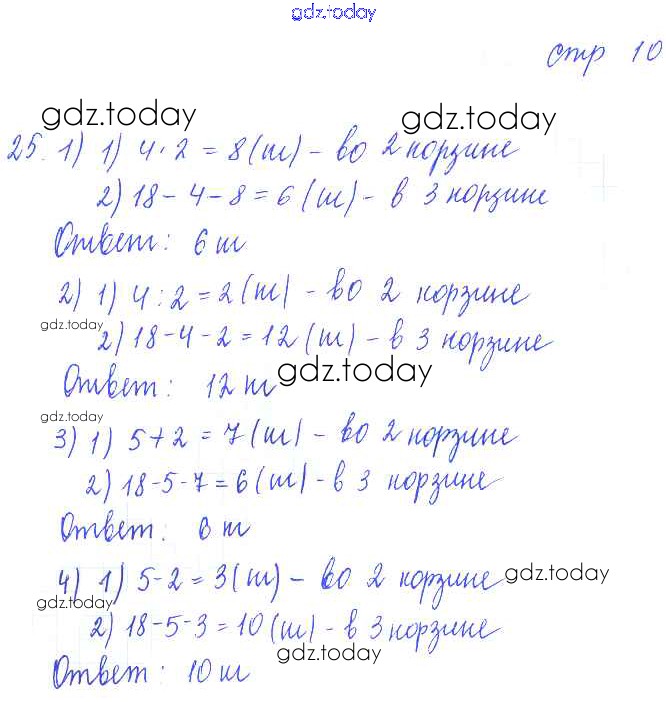 gdz.today
стр 10
gdz.today gdz.today
25. 1) 1) 4·2 = 8 (ш) - во 2 корзине
2) 18 - 4 - 8 = 6 (ш) - в 3 корзине
Ответ: 6 ш
2) 1) 4 : 2 = 2 (ш) - во 2 корзине
gdz.today
2) 18 - 4 - 2 = 12 (ш) - в 3 корзине
Ответ: 12 ш gdz.today
gdz.today
3) 1) 5 + 2 = 7 (ш) - во 2 корзине
2) 18 - 5 - 7 = 6 (ш) - в 3 корзине
Ответ: 6 ш
4) 1) 5 - 2 = 3 (ш) - во 2 корзине gdz.today
gdz.today
2) 18 - 5 - 3 = 10 (ш) - в 3 корзине
gdz.today
Ответ: 10 ш